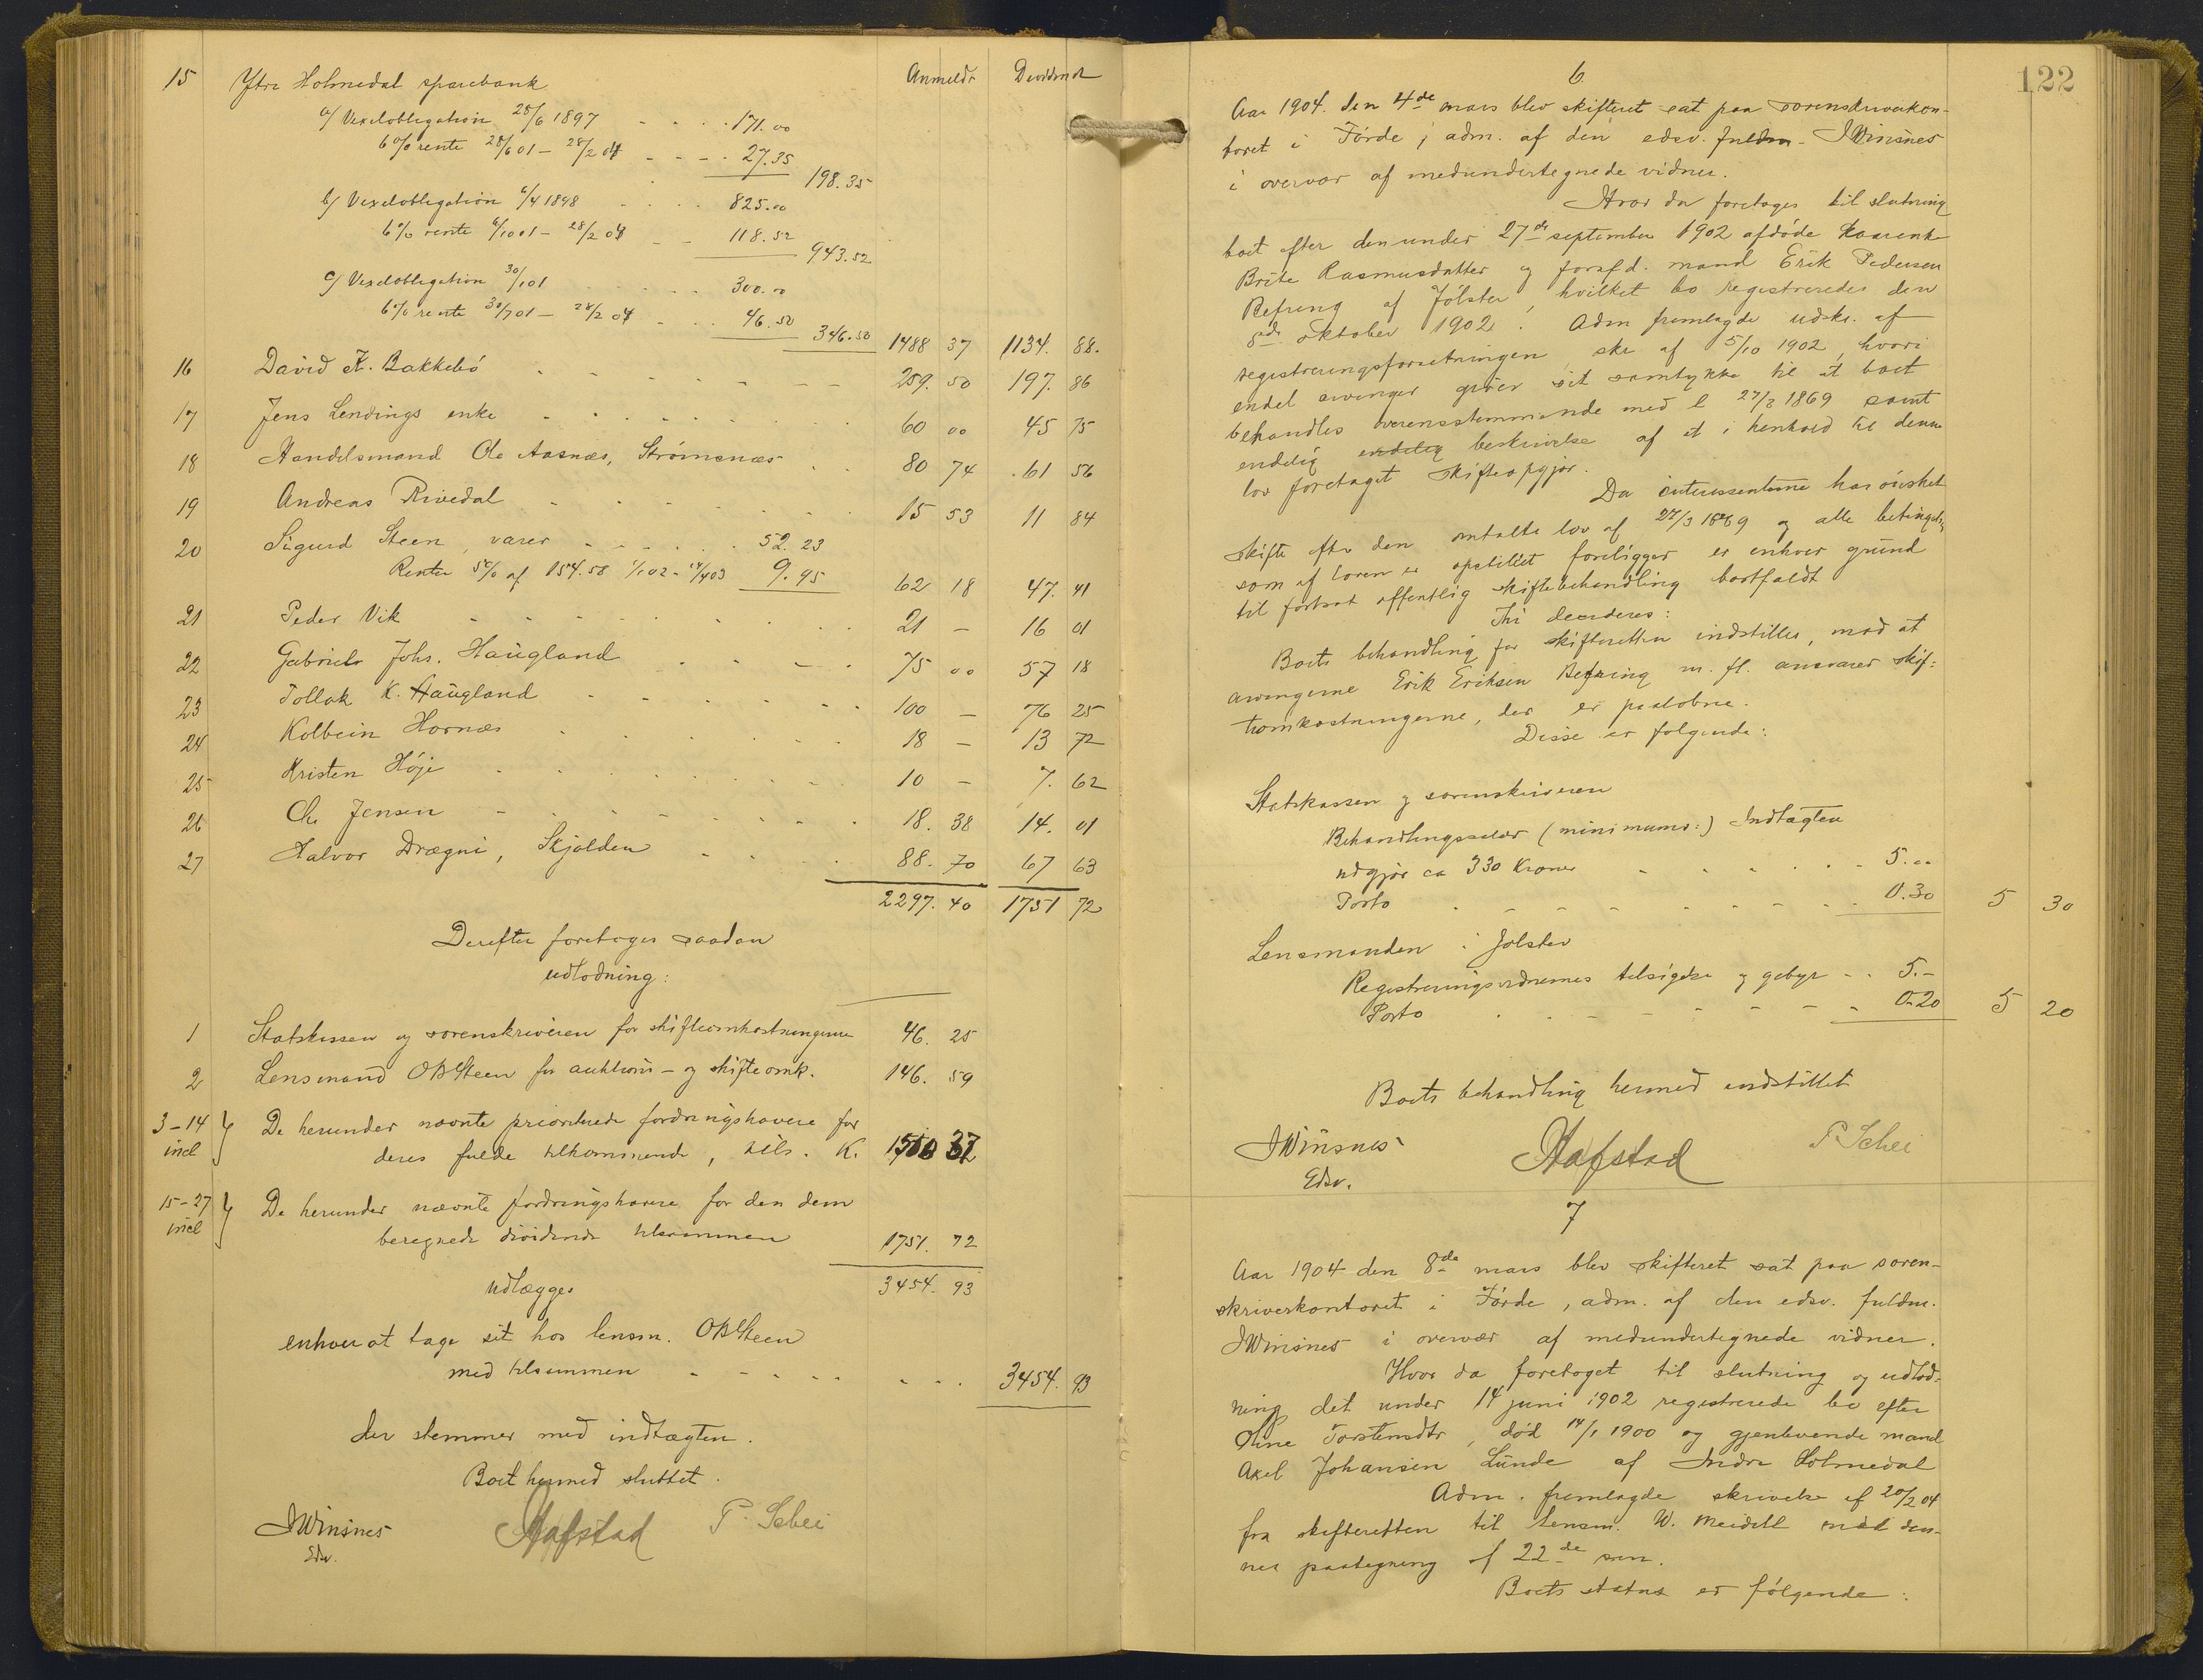 Anmeldt Dividende
15 Ytre Holmedal sparebank
a/ Vexelobligation 28/6 1897 - - - - 171.00
6% rente 28/6 01 - 28/2 04 - - - - 27.35
198.35
b/ Vexelobligation 6/4 1898 - - - - 825.00
6% rente 6/10 01 - 28/2 04 - - 118.52
943.52
c/ Vexelobligation 30/1 01 - - - - 300.00
6% rente 30/7 01 - 28/2 04 - - - 46.50
346.50 1488 37 1134. 88.
16 David K. Bakkebö - - - - - - - 259. 50 197. 86
17 Jens Lendings enke - - - - - - 60 00 45 75
18 Handelsmand Ole Aasnæs, Strömsnæs - - 80 74 61 56
19 Andreas Rivedal - - - - - - 15 53 11 84
20 Sigurd Steen, varer - - - - - 52. 23
Renter 5% af 154.58 1/1 02 - 14/4 03 9.95 62 18 47. 41
21 Peder Vik - - - - - - - 21 - 16 01
22 Gabriel Johs. Haugland - - - - 75 00 57 18
23 Tollak K. Haugland - - - - - 100 - 76 25
24 Kolbein Hornæs - - - - - - 18 - 13 72
25 Kristen Höje - - - - - - - 10 - 7. 62
26 Chr Jensen - - - - - - - 18. 38 14. 01
27 Halvor Drægni, Skjolden - - - - 88. 70 67 63
2297. 40 1751 72
Derefter foretoges saadan
udlodning:
1 Statskassen og sorenskriveren for skifteomkostningerne 46. 25
2 Lensmand OBSteen for auktions- og skifteomk. 146. 59
3-14 incl } De herunder nævnte prioriterede fordringshavere for
deres fulde tilkommende, tils. K. 1510 37
15-27 incl } De herunder nævnte fordringshavere for den dem
beregnede dividende tilsammen 1751. 72
udlægges 3454. 93
enhver at tage sit hos lensm. OBSteen
med tilsammen - - - - - - - - 3454. 93
der stemmer med indtægten.
Boet hermed sluttet.
JWinsnes Hafstad P. Schei
Edsv.
122
6
Aar 1904. den 4de mars blev skifteret sat paa sorenskriverkon-
toret i Förde, adm. af den edsv. fuldm. JWinsnes
i overvær af medundertegnede vidner.
Hvor da foretoges til slutning
boet efter den under 27de september 1902 afdöde
Brite Rasmusdatter og forafd. mand Erik Pedersen
Befring af Jölster, hvilket bo registreredes den
5te oktober 1902. Adm fremlagde udskr. af
registreringsforretningen skr af 5/10 1902, hvori
endel arvinger giver sit samtykke til at boet
behandles overensstemmende med l 27/3 1869 samt
endelig endelig beskrivelse af et i henhold til denne
lov foretaget skifteopgjör.
Da interessenterne har önsket
skifte efter den omtalte lov af 27/3 1869 og alle betingelser
som af loven er opstillet foreligger er enhver grund
til fortsat offentlig skiftebehandling bortfaldt
Thi decideres:
Boets behandling for skifteretten indstilles, mod at
arvingerne Erik Eriksen Befring m. fl. ansvarer skif-
teomkostningerne, der er paalöbne.
Disse er folgende:
Statskassen og sorenskriveren
Behandlingssalær (minimums:) Indtægten
udgjör ca 330 Kroner - - - - - 5.00
Porto - - - - - - - - - 0.30 5 30
Lensmanden i Jölster
Registreringsvidnernes tilsigelse og gebyr - - 5.-
Porto - - - - - - - - 0.20 5 20
Boets behandling hermed indstillet
JWinsnes Hafstad P. Schei
Edsv.
7
Aar 1904 den 8de mars blev skifteret sat paa soren-
skriverkontoret i Förde, adm. af den edsv. fuldm.
JWinsnes i overvær af medundertegnede vidner.
Hvor da foretoget til slutning og udlod-
ning det under 14 juni 1902 registrerede bo efter
Oline Torstensdtr, död 14/1 1900 og gjenlevende mand
Axel Johansen Lunde af Indre Holmedal
Adm. fremlagde skrivelse af 20/2 04
fra skifteretten til lensm. W. Meidell med den-
nes paategning af 22de s.m.
Boets status er fölgende: